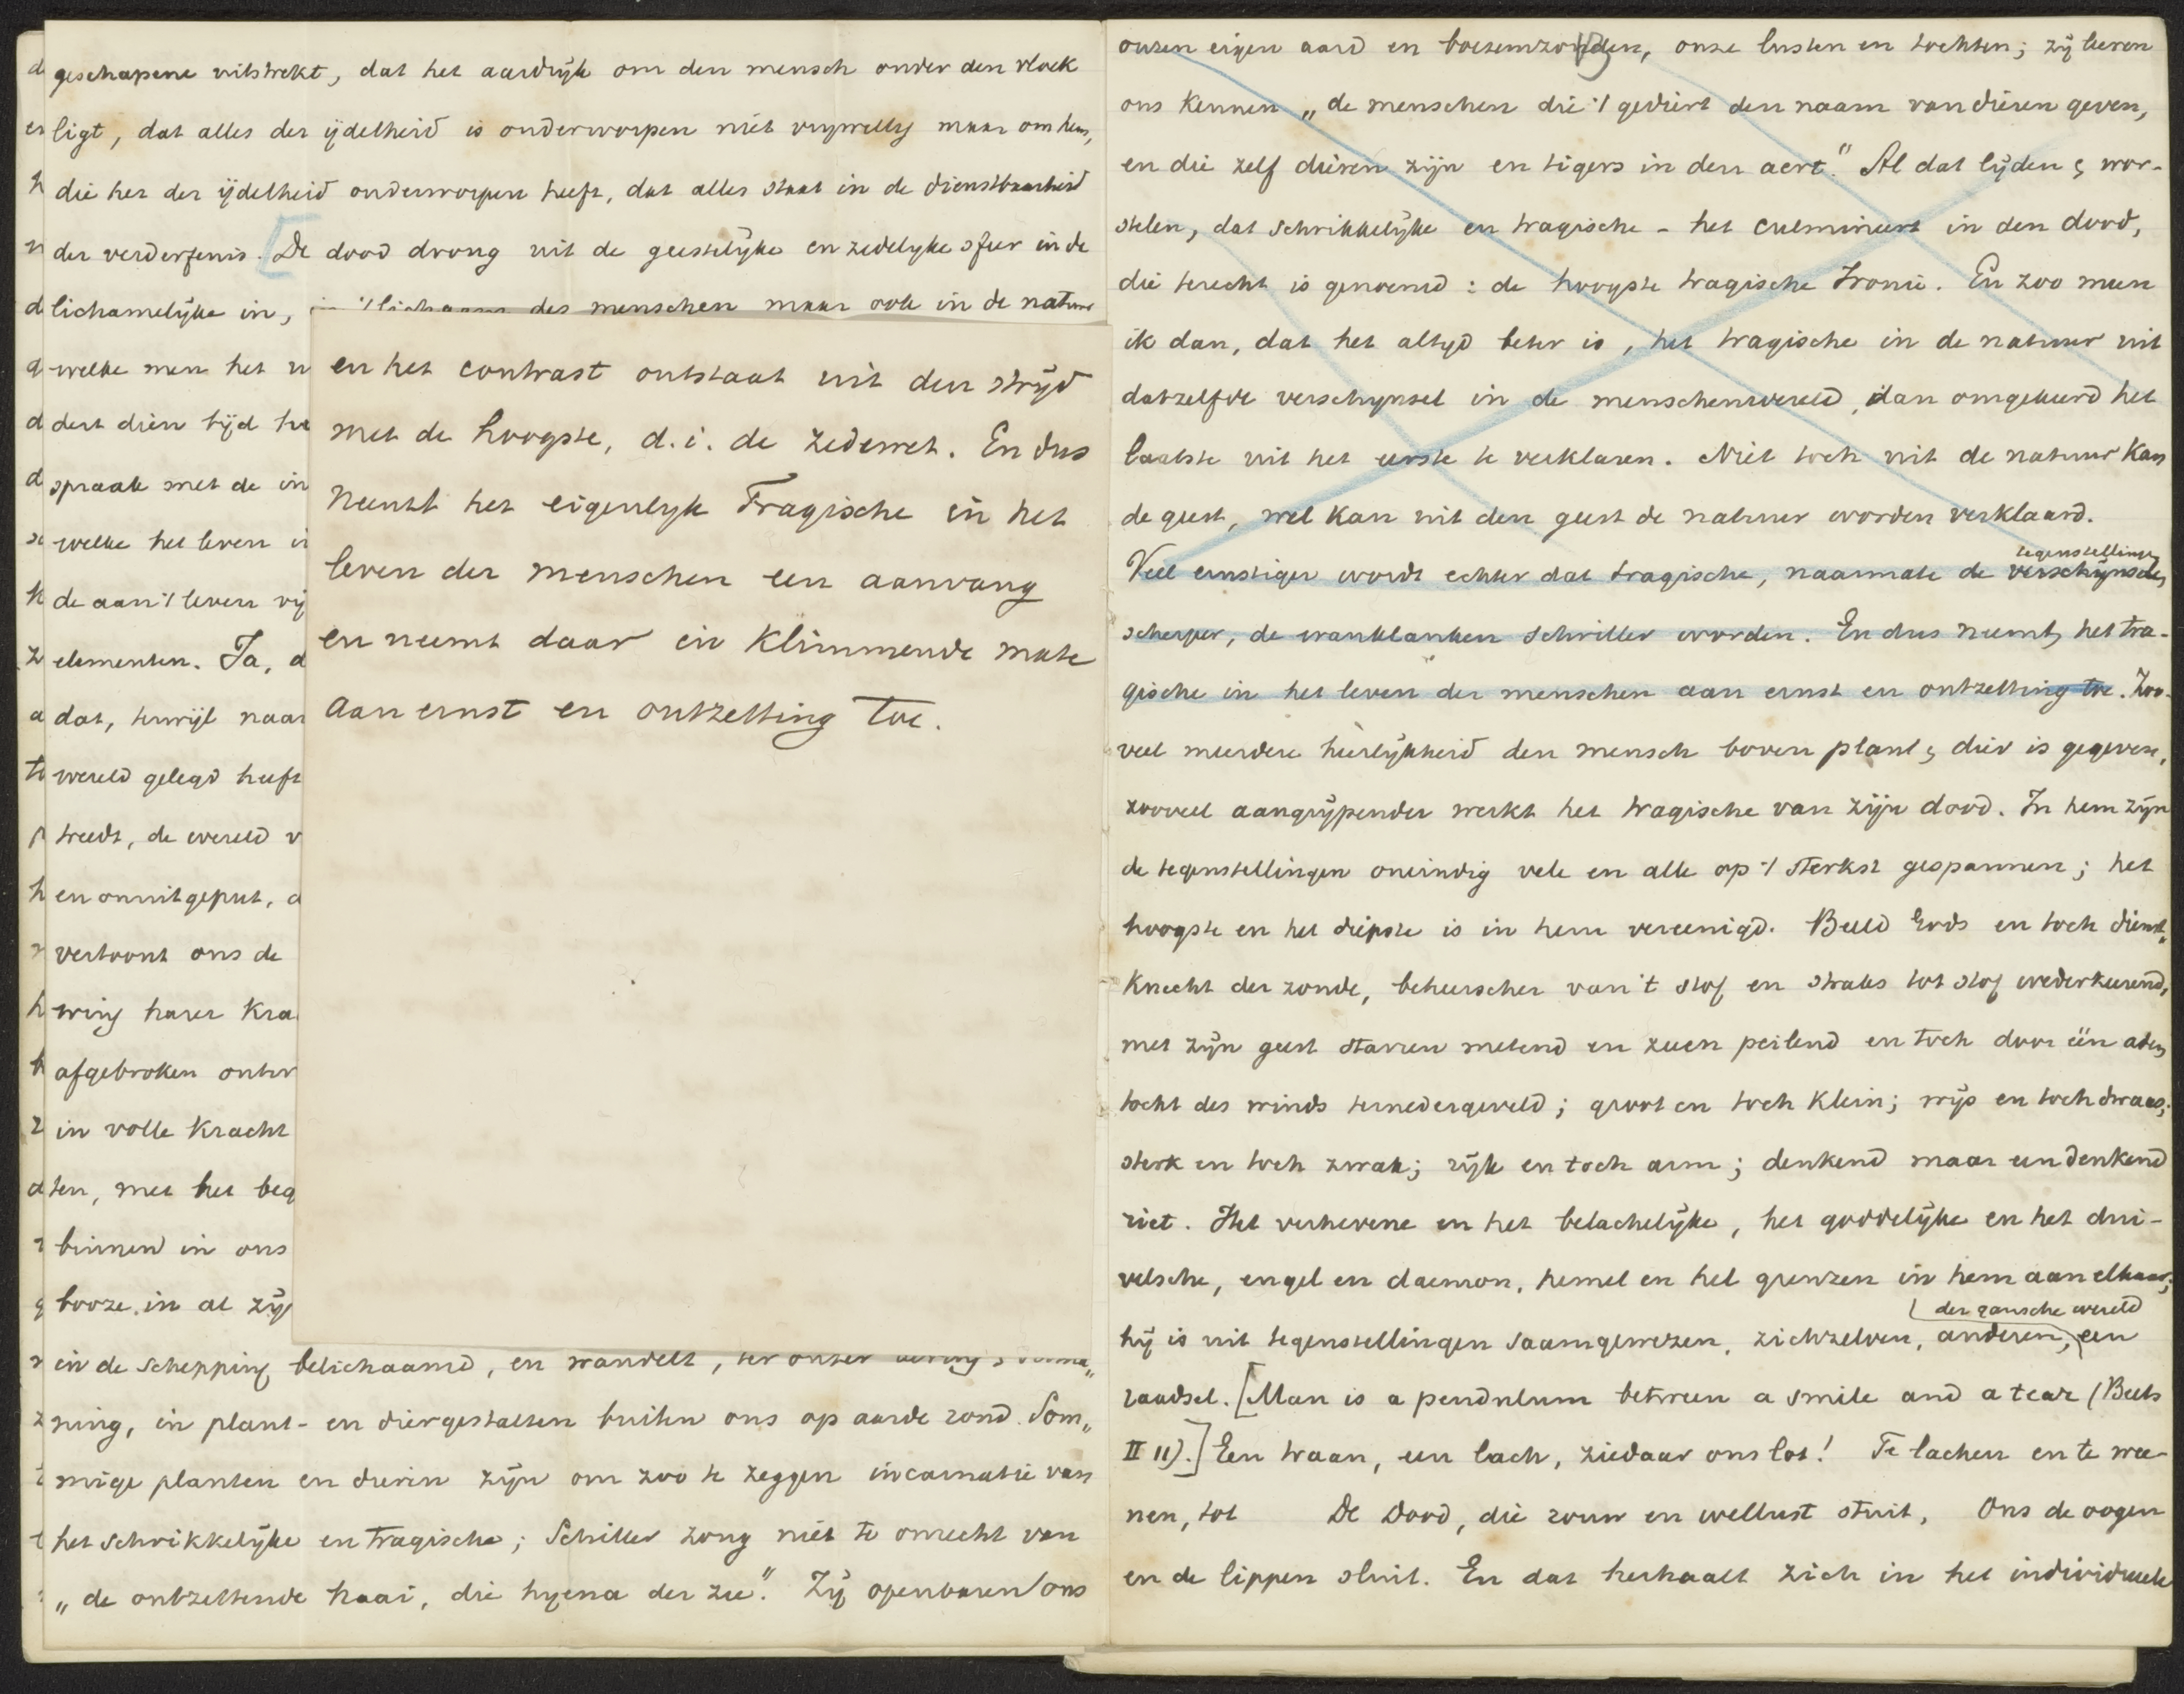 geschapene uitstrekt, dat het aardrijk om den mensch onder den vloek
ligt, dat alles der ijdelheid is onderworpen niet vrijwillig maar om hem,
die het der ijdelheid onderworpen heeft, dat alles staat in de dienstbaarheid
der verderfenis. [De dood drong uit de geestelijke en zedelyke sfeer in de
lichamelijke in, in 't lichaam des menschen maar ook in de natuur
welke men het
dert dien tijd
spraak met de in
welke het leven
de aan 't leven
elementen. Ja,
dat, terwijl naar
wereld gelegd heeft
treedt, de wereld
en onuitgeput,
vertoont ons de
wing harer
afgebroken
in volle kracht
ten, met het
binnen in ons
booze, in al
in de schepping belichaamd, en wandelt, ter onzer
ning, in plant- en diergestalten buiten ons op aarde rond. Som„
mige planten en dieren zijn om zoo te zeggen incarnatie van
het schrikkelijke en tragische; Schiller zong niet te onrecht van
„de ontzettende haai, die hyena der zee". Zij openbaren ons
en het contrast ontstaat uit den strijd
met de hoogste, d.i. de zedewet. En dus
neemt het eigenlyk Tragische in het
leven der menschen een aanvang
en neemt daar in klimmende mate
aan ernst en ontzetting toe.
onzen eigen aard en boezemzonden, onze lusten en tochten; zij leeren
ons kennen „de menschen die 't gediert den naam van dieren geven,
en die zelf dieren zijn en tigers in den aert." Al dat lijden & wor-
stelen, dat schrikkelijke en tragische - het culmineert in den dood,
die terecht is genoemd: de hoogste tragische Ironie. En zoo meen
ik dan, dat het altyd beter is, het tragische in de natuur uit
datzelfde verschynsel in de menschenwereld, dan omgekeerd het
laatste uit het eerste te verklaren. Niet toch uit de natuur kan
de geest, wel kan uit den geest de natuur worden verklaard.
tegenstellingen
Veel ernstiger wordt echter dat tragische, naarmate de verschijnselen
scherper, de wanklanken schriller worden. En dus neemt het tra-
gische in het leven der menschen aan ernst en ontzetting toe. Zoo-
veel meerdere heerlijkheid den mensch boven plant & dier is gegeven,
zooveel aangrijpender werkt het tragische van zijn dood. In hem zijn
de tegenstellingen oneindig vele en alle op 't sterkst gespannen; het
hoogste en het diepste is in hem vereenigd. Beeld Gods en toch dienst„
knecht der zonde, beheerscher van 't stof en straks tot stof wederkeerend,
met zijn geest starren metend en zeeen peilend en toch door één adem
tocht des winds ternedergeveld; groot en toch klein; wijs en toch dwaas;
sterk en toch zwak; rijk en toch arm; denkend maar een denkend
riet. Het verhevene en het belachelijke, het goddelijke en het dui-
velsche, engel en daemon, hemel en hel grenzen in hem aan elkaar;
der gansche wereld
hij is uit tegenstellingen saamgeweven, zichzelven, anderen, een
raadsel. [Man is a pendulum between a smile and a tear (Beets
II 11).] Een traan, een lach, ziedaar ons lot! Te lachen en te wee-
nen, tot De Dood, die rouw en wellust stuit, Ons de oogen
en de lippen sluit. En dat herhaalt zich in het individueele